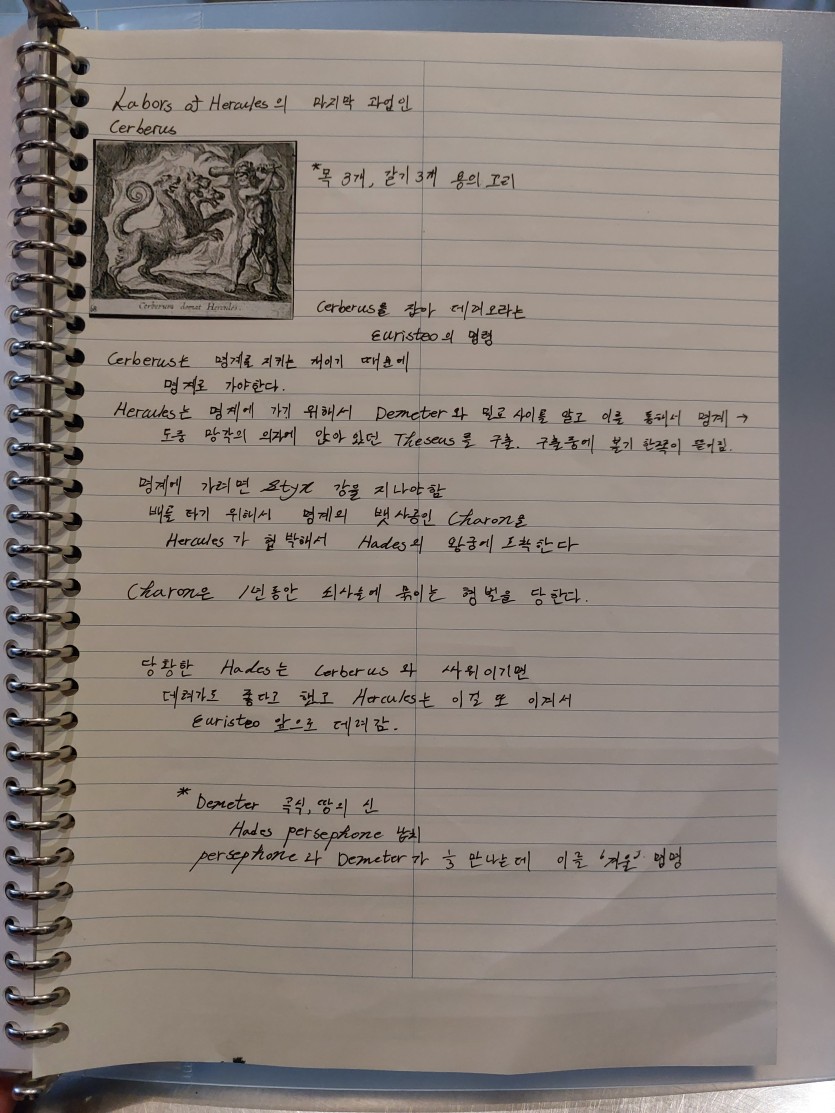 Labors of Hercules의 마지막 과업인
Cerberus
*목 3개, 갈기 3개 용의 꼬리
Cerberum domat Hercules.
Cerberus를 잡아 데려오라는
Euristeo의 명령
Cerberus는 명계를 지키는 개이기 때문에
명계로 가야한다.
Hercules는 명계에 가기 위해서 Demeter와 밀교 사이를 알고 이를 통해서 명계 →
도중 망각의 의자에 앉아 있던 Theseus를 구출. 구출중에 볼기 한쪽이 뜯어짐.
명계에 가려면 Styx 강을 지나야함
배를 타기 위해서 명계의 뱃사공인 Charon을
Hercules가 협박해서 Hades의 왕궁에 도착한다
Charon은 1년동안 쇠사슬에 묶이는 형벌을 당한다.
당황한 Hades는 Cerberus와 싸워이기면
데려가도 좋다고 했고 Hercules는 이걸 또 이겨서
Euristeo 앞으로 데려감.
* Demeter 곡식, 땅의 신
Hades persephone 납치
persephone과 Demeter가 못 만나는데 이를 '겨울'